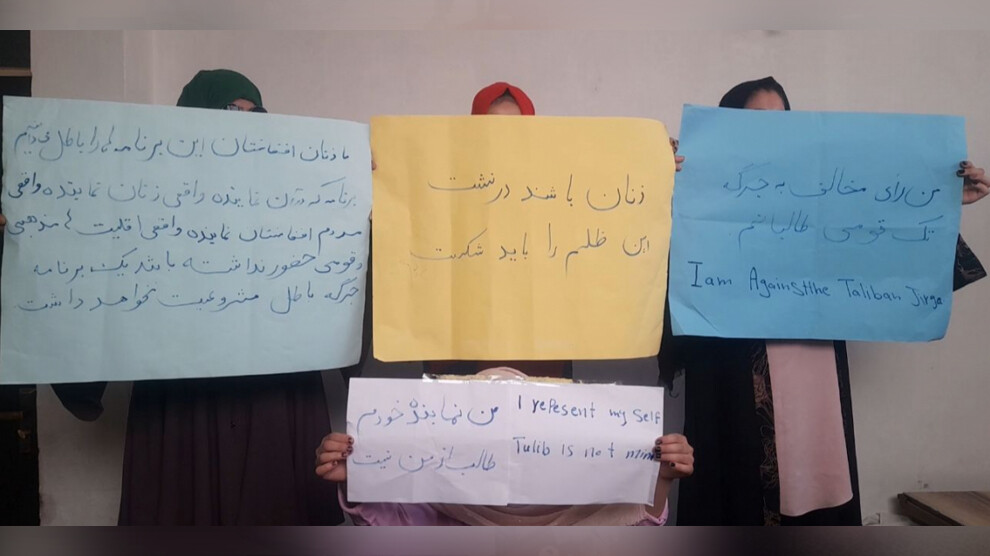 ما زنان افغانستان این برنامه ها را باطل میدانیم
برنامه که در آن نماینده واقعی زنان نماینده واقعی
مردم افغانستان نماینده واقعی اقلیت ها مذهبی
و قومی حضور نداشته باشد یک برنامه
جرگه باطل مشروعیت نخواهد داشت
زنان باشند در نشست
این ظلم را باید شکست
من رای مخالف به جرگه
تک قومی طالبانم
I am Against the Taliban Jirga
من نماینده خودم
طالب از من نیست
I repesent my self
Tulib is not mine